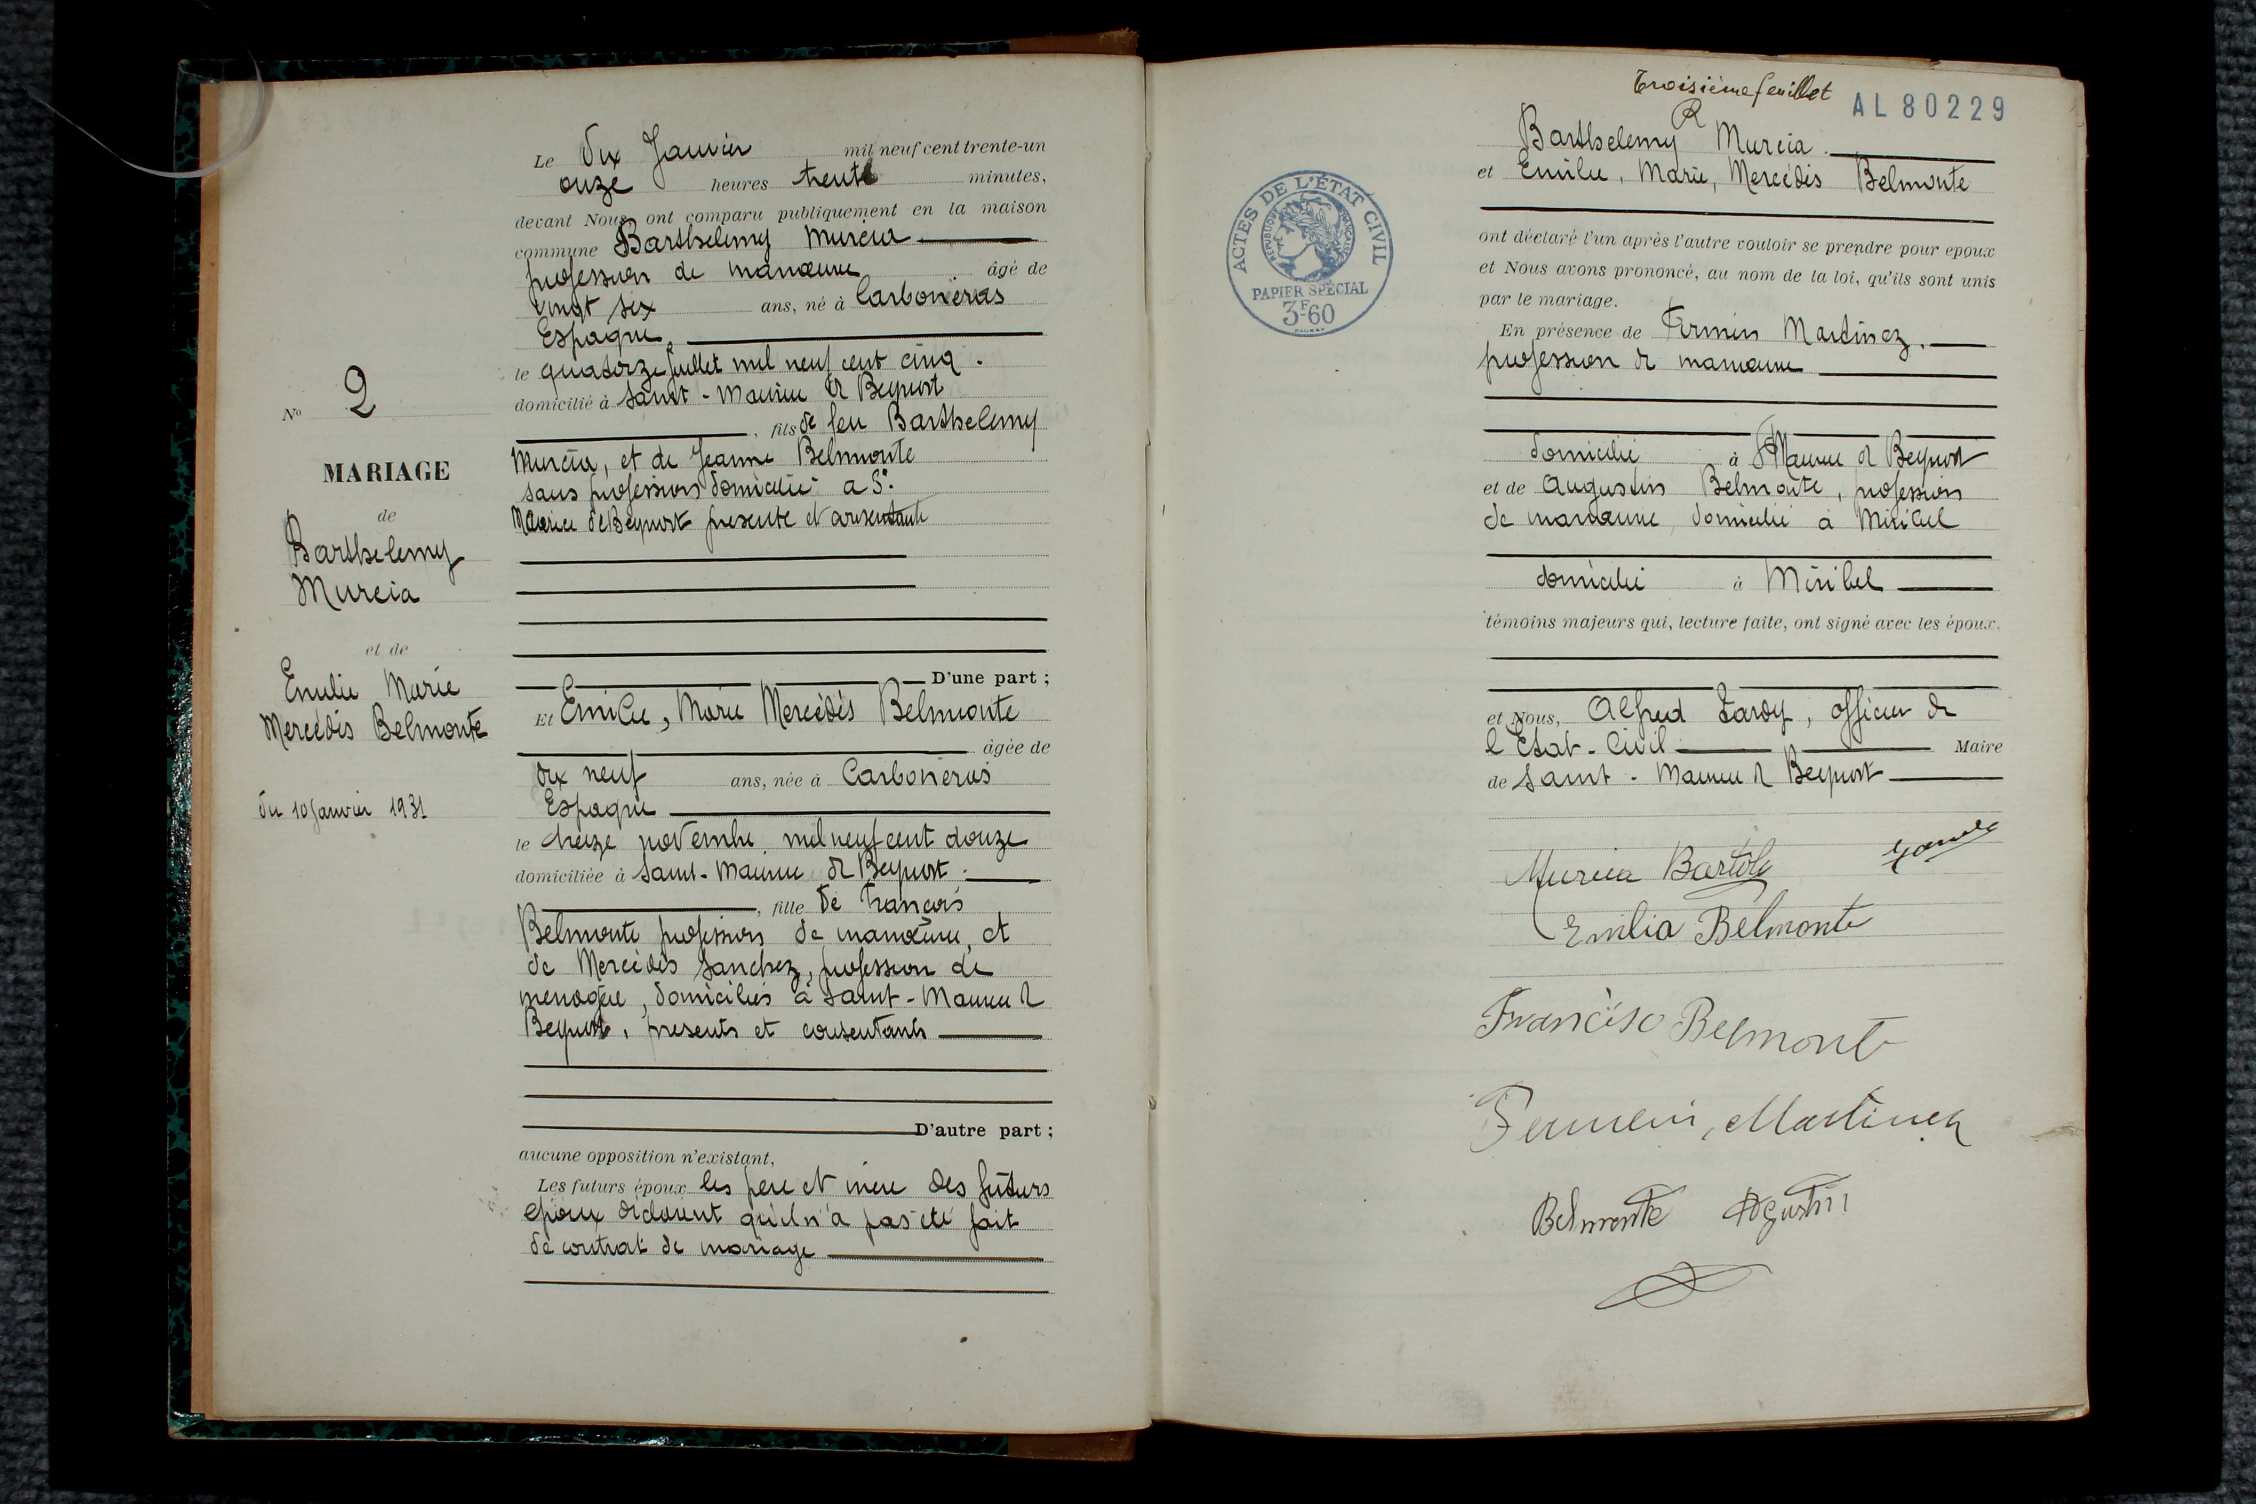 N° 2
MARIAGE
de
Barthelemy
Murcia
et de
Emilie Marie
Mercédès Belmonte
du 10 Janvier 1931
Le Dix Janvier mil neuf cent trente-un
onze heures trente minutes,
devant Nous, ont comparu publiquement en la maison
commune Barthelemy Murcia
profession de manœuvre âgé de
vingt six ans, né à Carboneras
Espagne,
le quatorze juillet mil neuf cent cinq.
domicilié à Saint-Maurice de Beynost
, fils de feu Barthelemy
Murcia, et de Jeanne Belmonte
sans profession domiciliée a St
Maurice de Beynost presente et
D'une part ;
Et Emilie, Marie Mercédès Belmonte
âgée de
dix neuf ans, née à Carboneras
Espagne
le treize novembre mil neuf cent douze
domiciliée à Saint-Maurice de Beynost
, fille de François
Belmonte profession de manœuvre, et
de Mercédès Sanchez, profession de
menagère, domiciliés à Saint-Maurice de
Beynost, presents et consentants
D'autre part ;
aucune opposition n'existant,
Les futurs époux les père et mère des futurs
époux déclarent qu'il n'a pas été fait
de contrat de mariage
Troisième feuillet AL 80229
ACTES DE L'ÉTAT CIVIL
RÉPUBLIQUE FRANÇAISE
PAPIER SPÉCIAL
3F60
Barthelemy Murcia
et Emilie, Marie, Mercédès Belmonte
ont déclaré l'un après l'autre vouloir se prendre pour époux
et Nous avons prononcé, au nom de la loi, qu'ils sont unis
par le mariage.
En présence de Firmin Martinez,
profession de manœuvre
domicilié à St Maurice de Beynost
et de Augustin Belmonte, profession
de manœuvre, domicilié à Miribel
domicilié à Miribel
témoins majeurs qui, lecture faite, ont signé avec les époux.
et Nous, Alfred Tardy, officier de
l'Etat-Civil Maire
de Saint-Maurice de Beynost
Murcia Bartolo
Emilia Belmonte
Francisco Belmonte
Fermin, Martinez
Belmonte Agustin